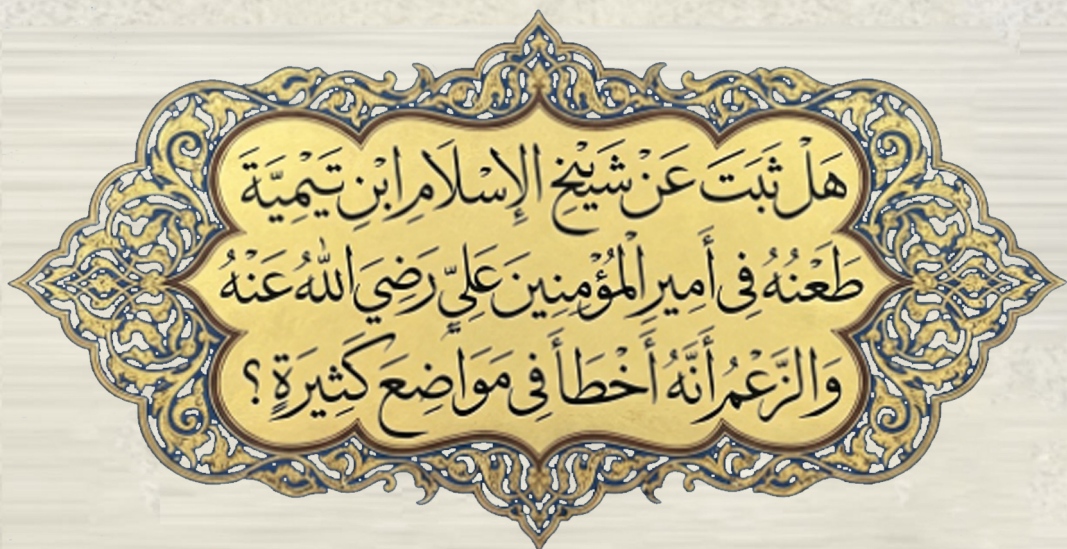 هَلْ ثَبَتَ عَنْ شَيْخِ الإِسْلَامِ ابْنِ تَيْمِيَّةَ
طَعْنُهُ فِي أَمِيرِ الْمُؤْمِنِينَ عَلِيٍّ رَضِيَ اللهُ عَنْهُ
وَالزَّعْمُ أَنَّهُ أَخْطَأَ فِي مَوَاضِعَ كَثِيرَةٍ ؟